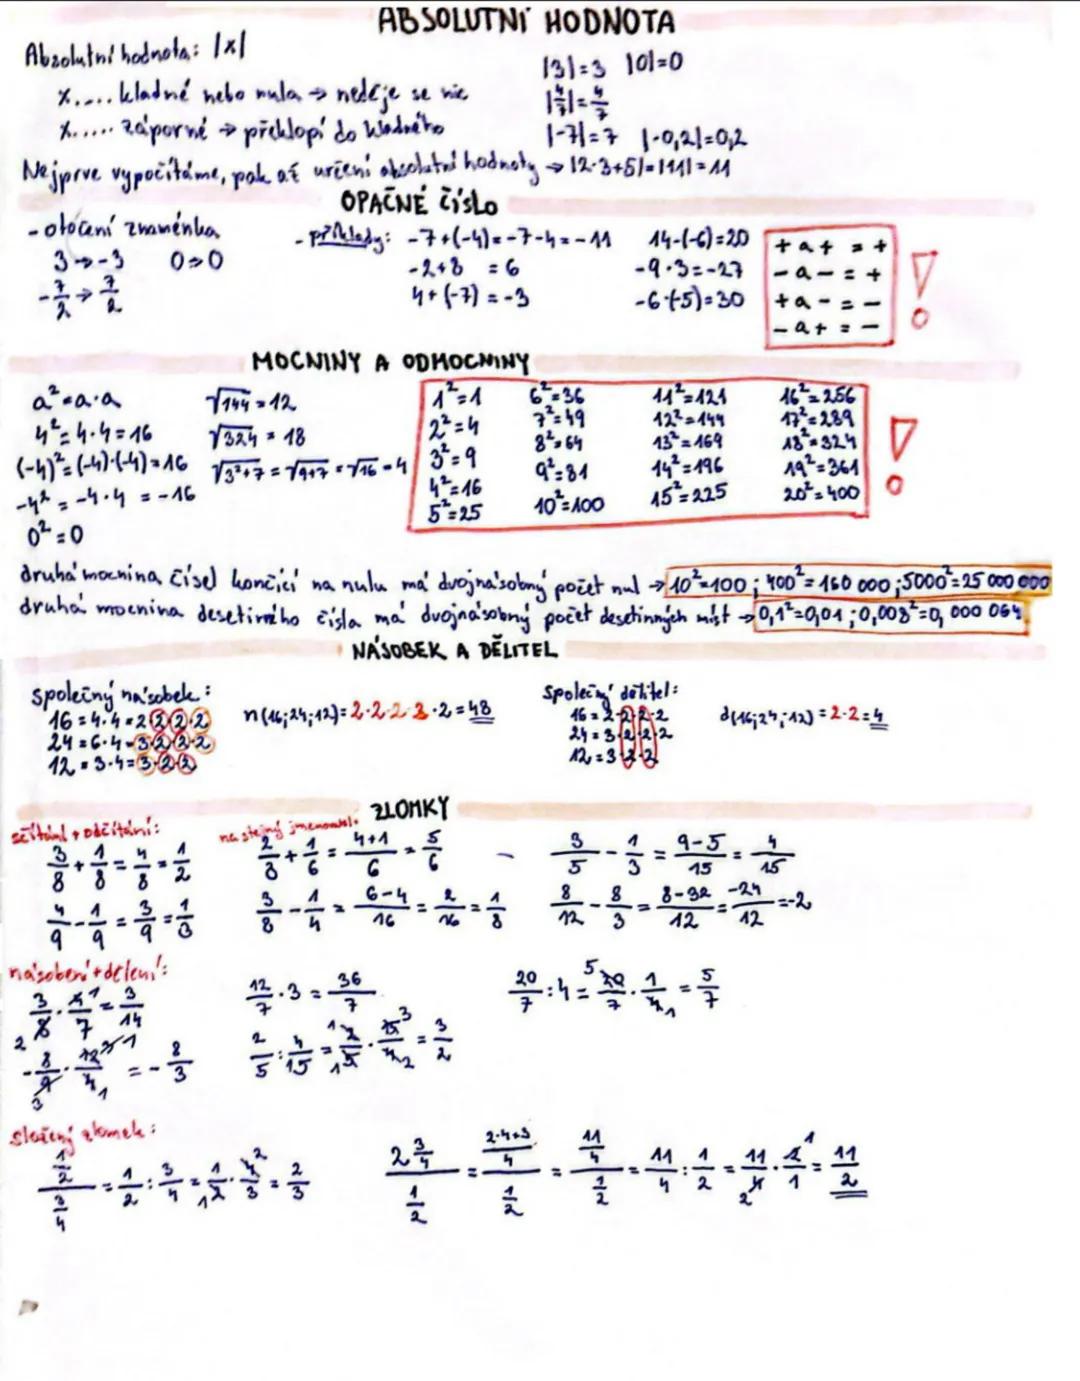 ABSOLUTNÍ HODNOTA
Absolutní hodnota: |x|
|3|=3 |0|=0
x.... kladné nebo nula → neděje se nic
|4/7|=4/7
x..... záporné → překlopí do kladného
|-7|=7 |-0,2|=0,2
Nejprve vypočítáme, pak až určení absolutní hodnoty → |2·3+5|=|11|=11
OPAČNÉ ČÍSLO
- otočení znaménka
3→-3 0→0
-7/2→7/2
- příklady: -7+(-4)=-7-4=-11 14-(-6)=20
-2+8 =6 -9·3=-27
4+(-7)=-3 -6·(-5)=30
+ a + = +
- a - = +
+ a - = -
- a + = -
!
MOCNINY A ODMOCNINY
a²=a·a
4²=4·4=16
(-4)²=(-4)·(-4)=16
-4²=-4·4 =-16
0²=0
√144=12
√324=18
√3²+7=√9+7=√16=4
1²=1 6²=36 11²=121 16²=256
2²=4 7²=49 12²=144 17²=289
3²=9 8²=64 13²=169 18²=324
4²=16 9²=81 14²=196 19²=361
5²=25 10²=100 15²=225 20²=400
!
druhá mocnina čísel končící na nulu má dvojnásobný počet nul → 10²=100 ; 400²=160 000 ; 5000²=25 000 000
druhá mocnina desetinného čísla má dvojnásobný počet desetinných míst → 0,1²=0,01 ; 0,008²=0,000 064
NÁSOBEK A DĚLITEL
společný násobek:
16=4·4=2·2·2·2
24=6·4=3·2·2·2
12=3·4=3·2·2
n(16;24;12)=2·2·2·3·2=48
Společný dělitel:
16=2·2·2·2
24=3·2·2·2
12=3·2·2
d(16;24;12)=2·2=4
ZLOMKY
sčítání + odčítání:
3/8+1/8=4/8=1/2
4/9-1/9=3/9=1/3
na stejný jmenovatel
2/3+1/6=4+1/6=5/6
3/8-1/4=6-4/16=2/16=1/8
3/5-1/3=9-5/15=4/15
8/12-8/3=8-32/12=-24/12=-2
násobení + dělení:
3/8·4/7=3/14
-8/9·12/4=-8/3
12/7·3=36/7
2/5:4/15=2/5·15/4=3/2
20/7:4=20/7·1/4=5/7
složený zlomek:
1/2 / 3/4=1/2:3/4=1/2·4/3=2/3
2 3/4 / 1/2=2·4+3/4 / 1/2=11/4 / 1/2=11/4:1/2=11/4·2/1=11/2